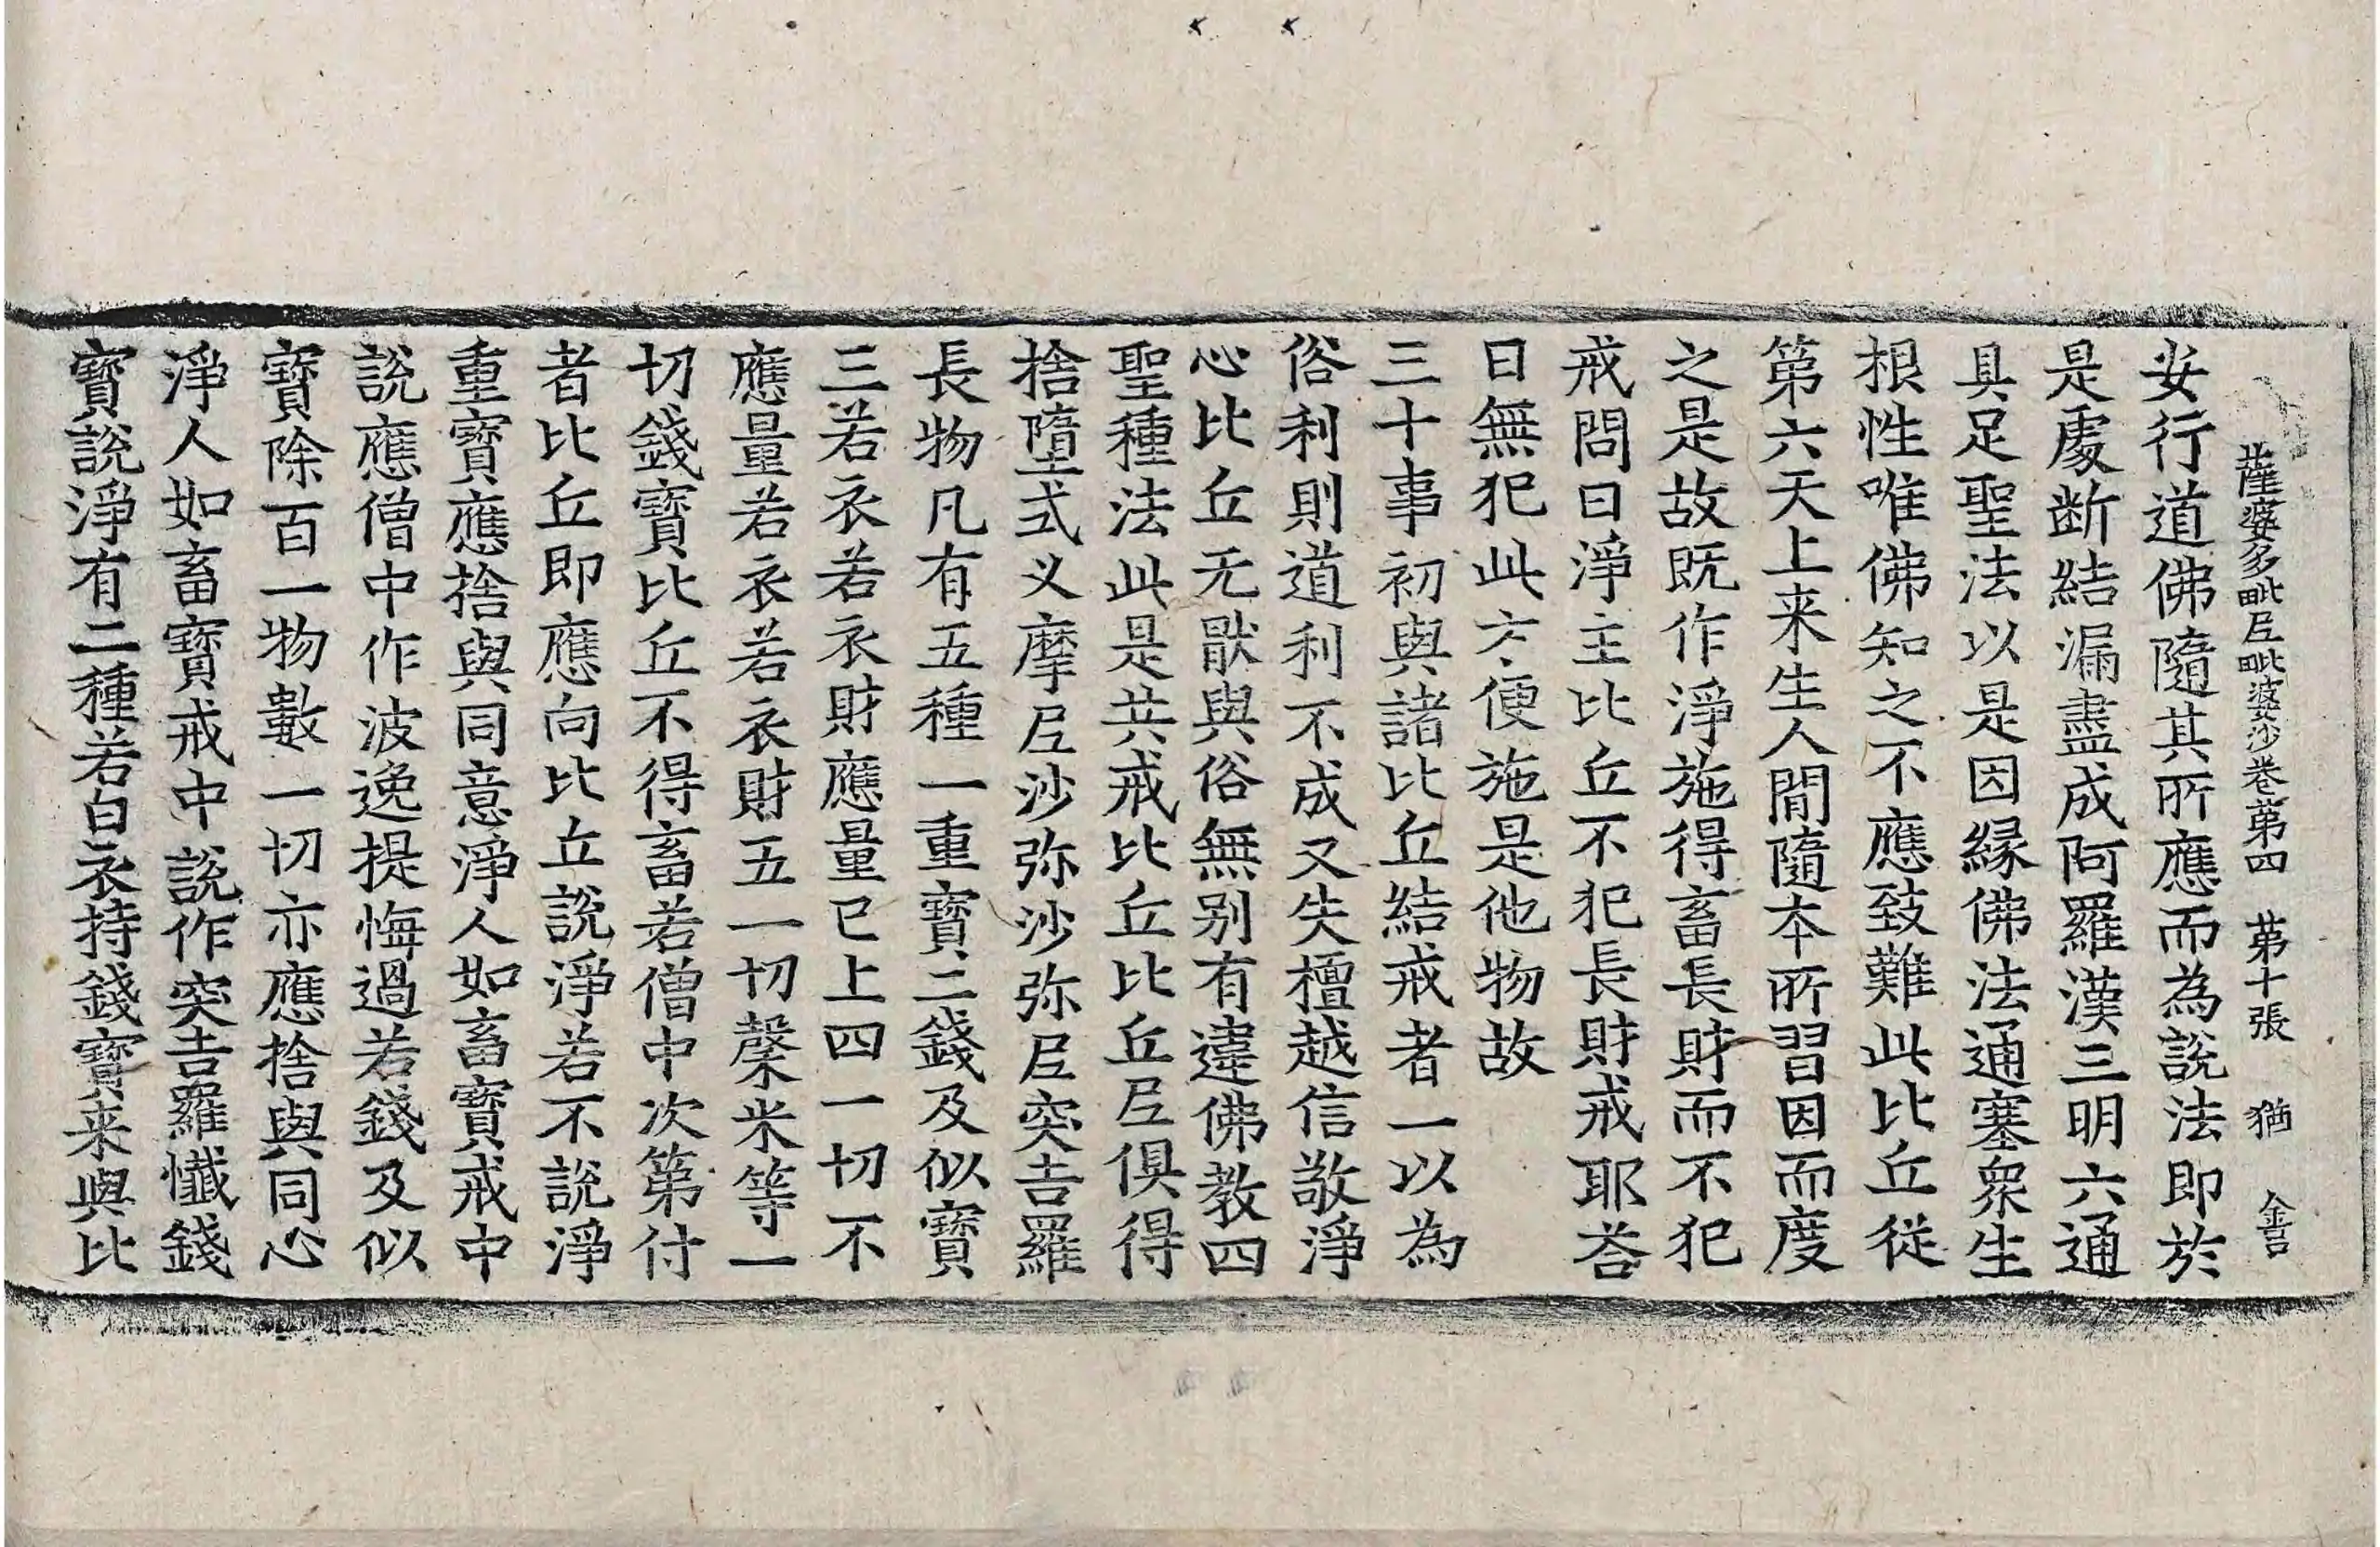 薩婆多毗𡰱毗婆沙卷苐四　苐十張　猶
安行道佛隨其所應而為說法即於
是處断結漏盡成阿羅漢三明六通
具足聖法以是因緣佛法通塞衆生
根性唯佛知之不應致難此比丘従
第六天上来生人間隨本所習因而度
之是故既作淨施得畜長財而不犯
戒問曰淨主比丘不犯長財戒耶荅
曰無犯此方便施是他物故
三十事初與諸比丘結戒者一以為
俗利則道利不成又失檀越信敬淨
心比丘无猒與俗無別有違佛教四
聖種法此是共戒比丘比丘𡰱俱得
捨墮式叉摩𡰱沙弥沙弥𡰱突吉羅
長物凡有五種一重寶二錢及似寶
三若衣若衣財應量已上四一切不
應量若衣若衣財五一切榖米等一
切錢寶比丘不得畜若僧中次第付
者比丘即應向比丘說淨若不說淨
重寶應捨與同意淨人如畜寶戒中
說應僧中作波逸提悔過若錢及似
寶除百一物數一切亦應捨與同心
淨人如畜寶戒中說作突吉羅懺錢
寶說淨有二種若白衣持錢寶来與比